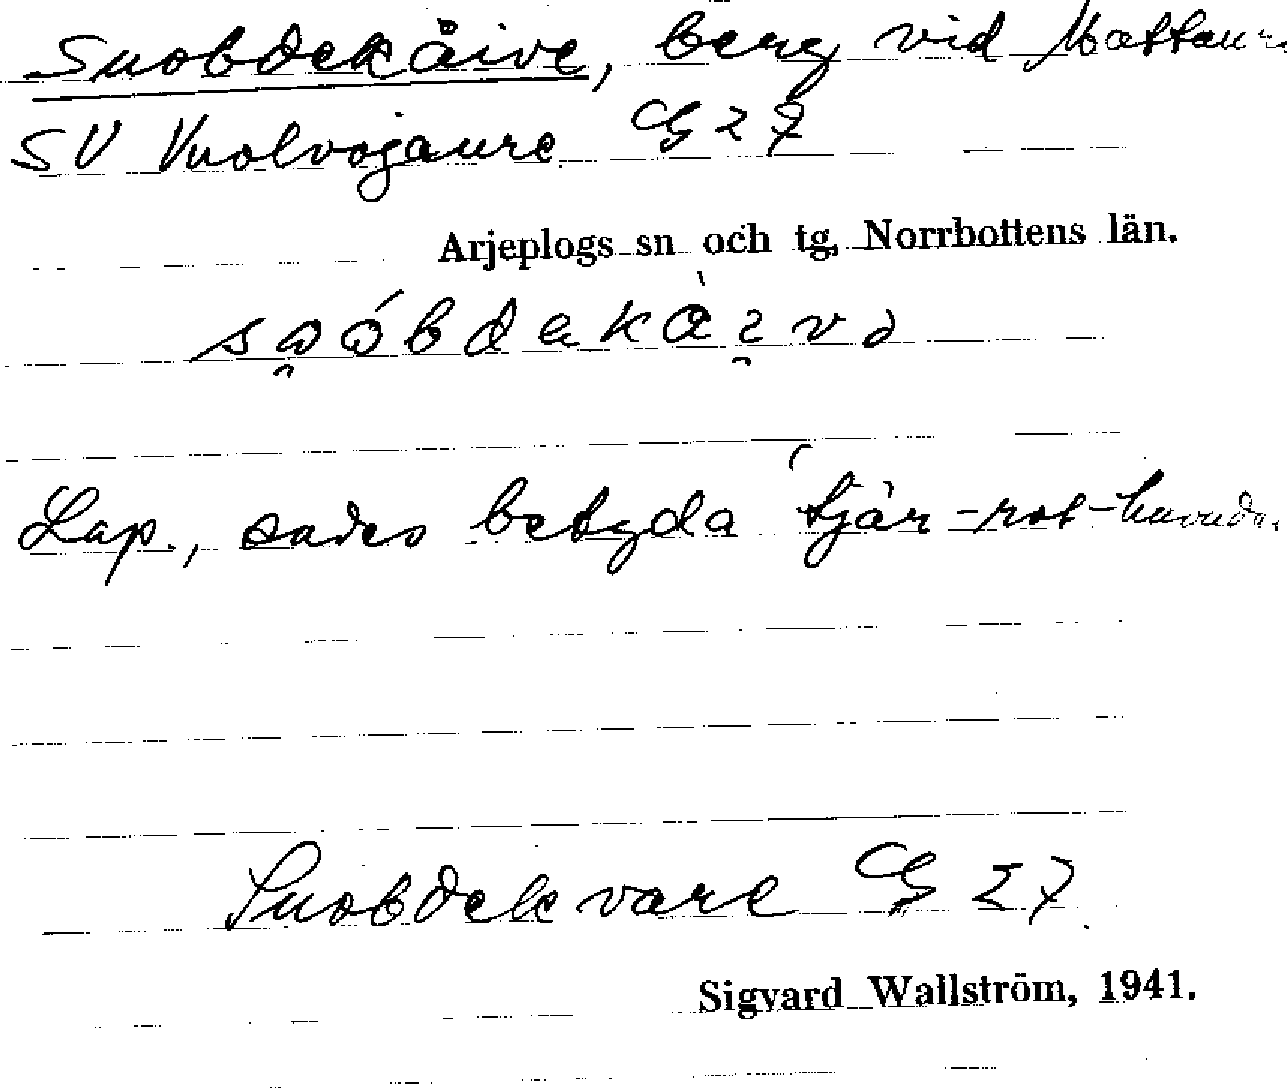 Suobdekåive, berg vid Mattaure
SV Vuolvojaure G 27
Arjeplogs sn och tg, Norrbottens län.
Lap., sades betyda tjär-rot-huvude.
Suobdekvare G 27.
Sigvard Wallström, 1941.